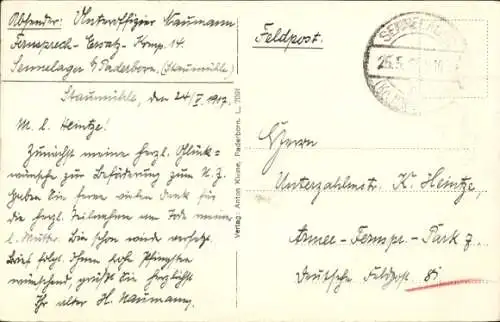 Absender: Unteroffizier Naumann
Fernsprech-Ersatz-Komp. 14.
Sennelager b/Paderborn, (Staumühle)
Staumühle, den 24/V. 1917.
M. l. Heintze!
Zunächst meine herzl. Glück-
wünsche zur Beförderung zum U. Z.
Haben Sie ferner vielen Dank für
die herzl. Teilnahme am Tode meiner
l. Mutter. Bin schon wieder versetzt.
Brief folgt. Ihnen frohe Pfingsten
wünschend, grüßt Sie herzlichst
Ihr alter H. Naumann.
Verlag: Anton Kruse, Paderborn. L. 7091
Feldpost.
SENNELAGER
25.5.
Herrn
Unterzahlmstr. K. Heintze,
Armee-Fernspr.-Park
Deutsche Feldpost 85